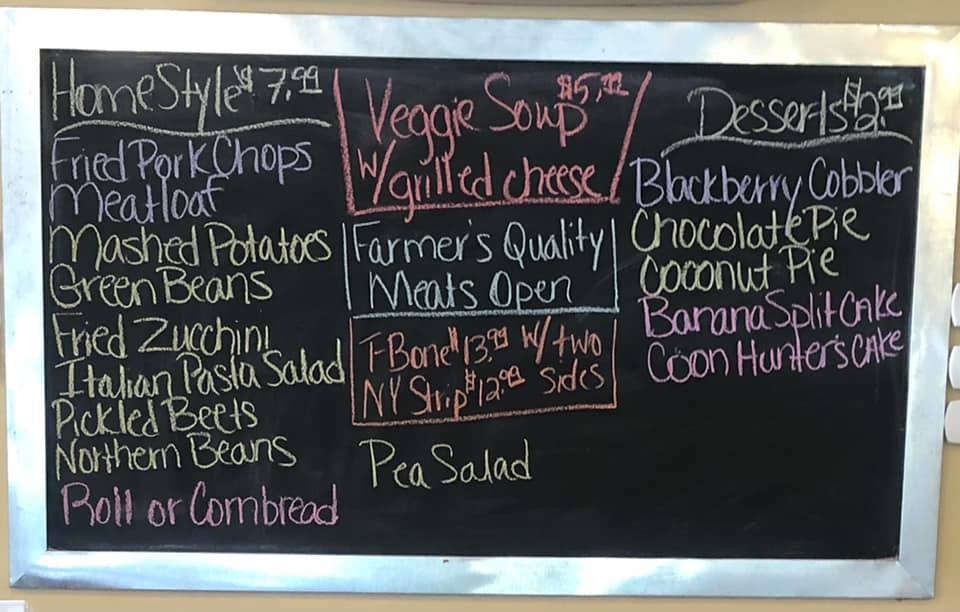 HomeStyle $7.99
Fried Pork Chops
Meatloaf
Mashed Potatoes
Green Beans
Fried Zucchini
Italian Pasta Salad
Pickled Beets
Northern Beans
Roll or Cornbread
Veggie Soup $5.99
w/grilled cheese
Farmer's Quality
Meats Open
T-Bone $13.99 w/ two
NY Strip $12.99 sides
Pea Salad
Desserts $2.99
Blackberry Cobbler
Chocolate Pie
Coconut Pie
Banana Split Cake
Coon Hunter's Cake